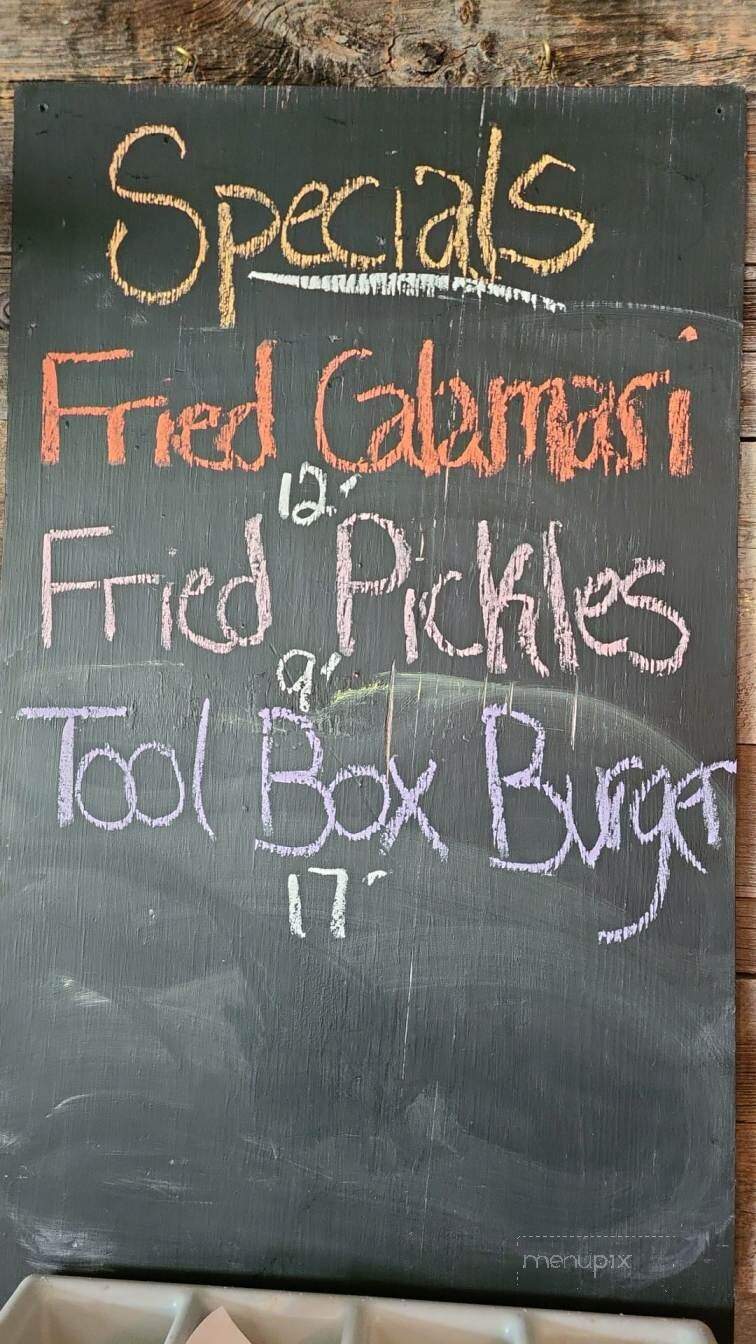 Specials
Fried Calamari
12.-
Fried Pickles
9.-
Tool Box Burger
17-
menupix